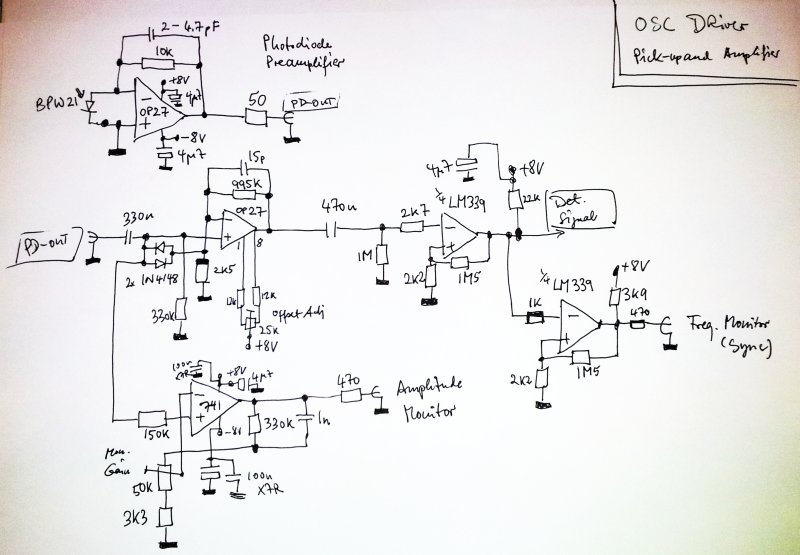 OSC Driver
Pick-up and Amplifier
2-4,7pF
10K
Photodiode
Preamplifier
BPW21
+8V
4µ7
OP27
50
PD-OUT
-8V
4µ7
15p
995K
OP27
330n
PD-OUT
2x 1N4148
2K5
330K
1
8
12K
12K
Offset Adj
25K
+8V
470n
1M
2K7
¼ LM339
2K2
1M5
4µ7
+8V
22K
Det.
Signal
¼ LM339
+8V
3K9
470
1K
2K2
1M5
Freq. Monitor
(Sync)
100n
X7R
+8V
4µ7
741
-8V
150K
330K
1n
470
Amplitude
Monitor
Mon.
Gain
50K
3K3
100n
X7R